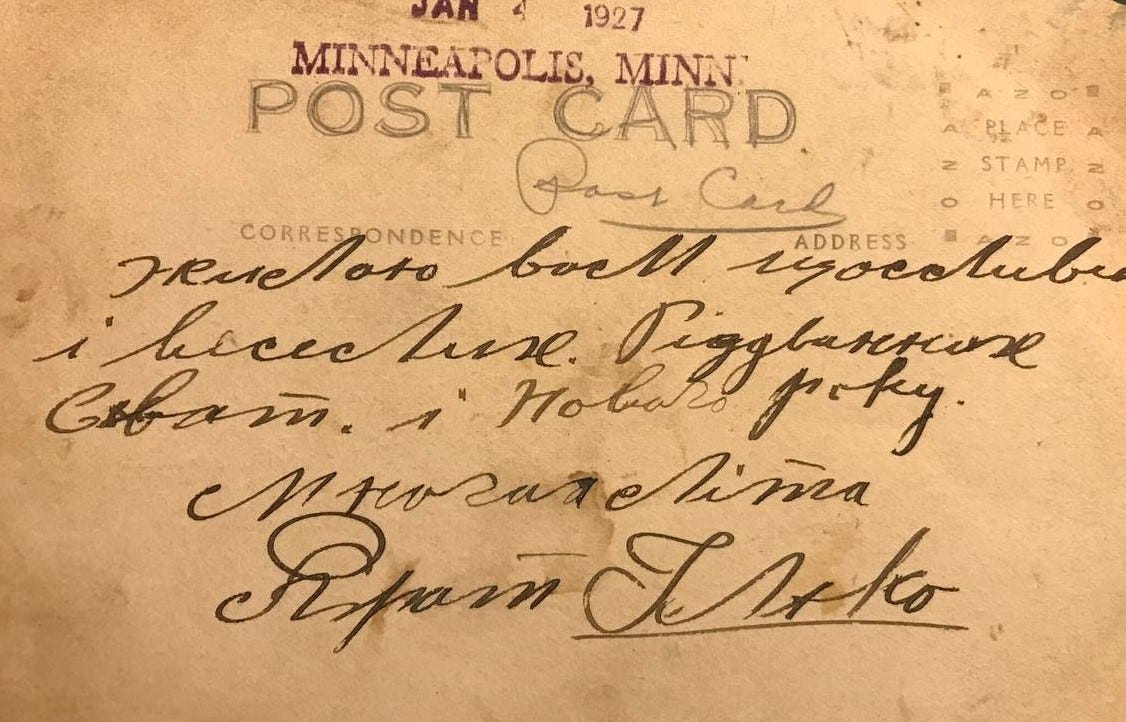 JAN 4 1927
MINNEAPOLIS, MINN.
POST CARD
AZO
PLACE
STAMP
HERE
AZO
Post Card
CORRESPONDENCE
ADDRESS
желаю вам щосливи
і веселих. Ріддванних
Сват. і Нового року.
Многая літа
Брат Ілко